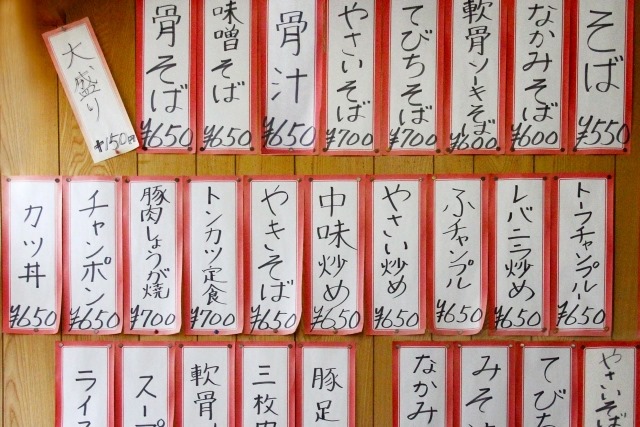 そば
¥550
なかみそば
¥600
軟骨ソーキそば
¥600
てびちそば
¥700
やさいそば
¥700
骨汁
¥650
味噌そば
¥650
骨そば
¥650
大盛り
+150円
トーフチャンプルー
¥650
レバニラ炒め
¥650
ふチャンプル
¥650
やさい炒め
¥650
中味炒め
¥650
やきそば
¥650
トンカツ定食
¥700
豚肉しょうが焼
¥700
チャンポン
¥650
カツ丼
¥650
やさいそば
てびち
みそ
なかみ
豚足
三枚肉
軟骨
スープ
ライス